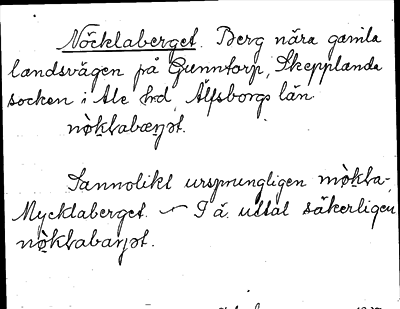 Nöcklaberget. Berg nära gamla
landsvägen på Gunntorp, Skepplanda
socken i Ale hrd, Älfsborgs län.
nòklabæryət.
Sannolikt ursprungligen mòkla-,
Mycklaberget. — I ä. uttal säkerligen
nòklabaryət.